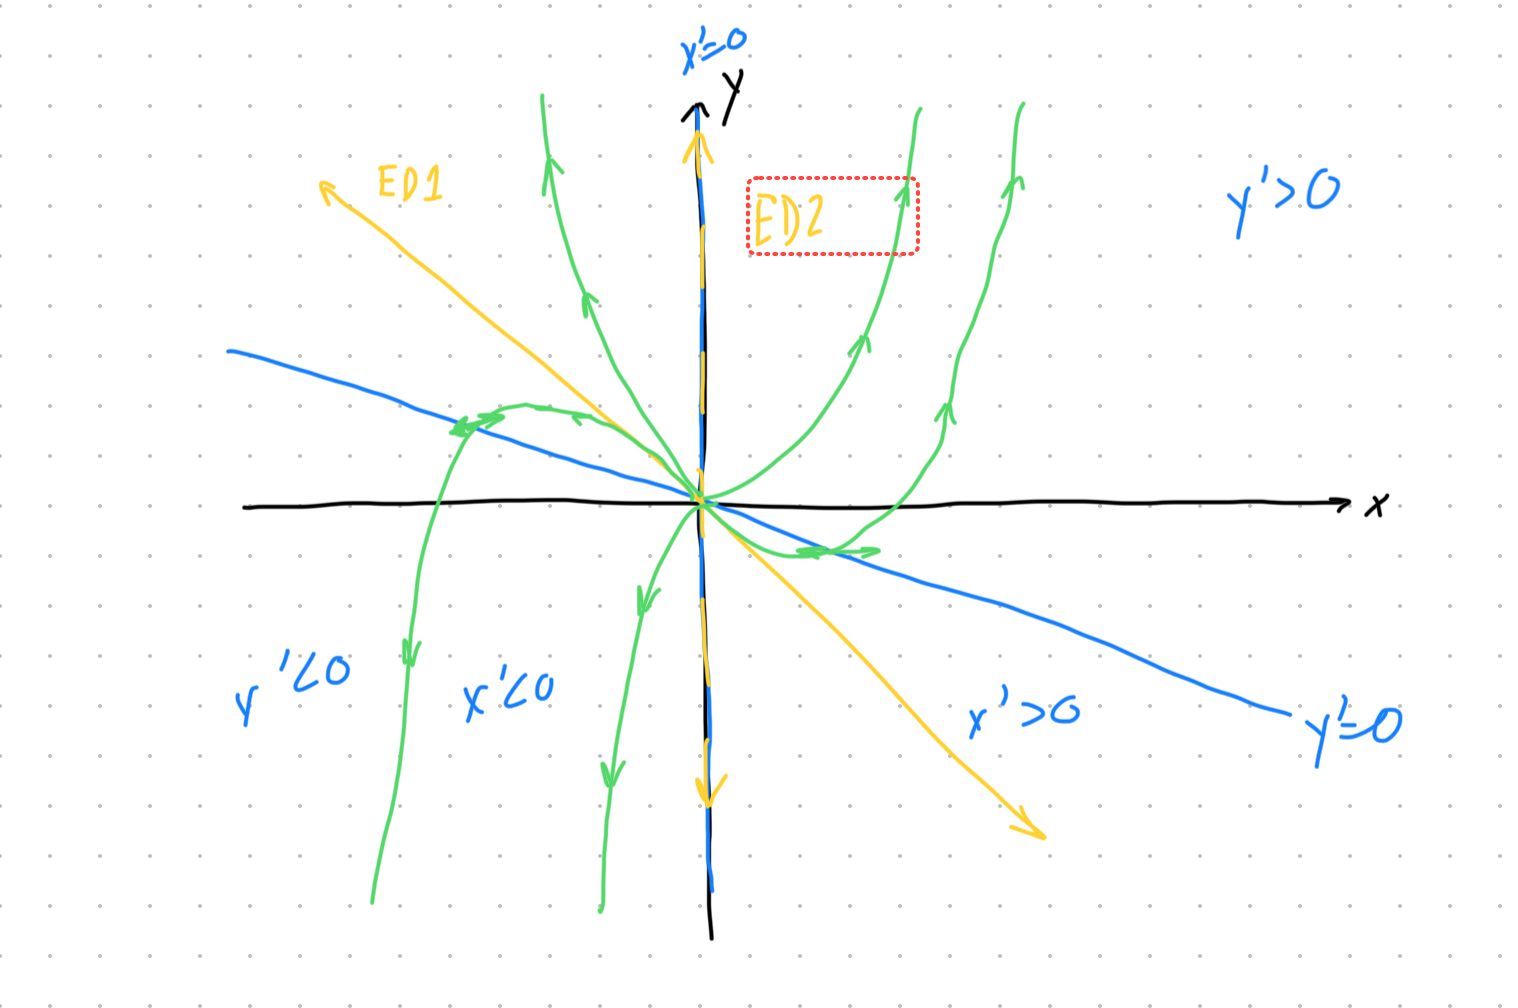 x'=0
y
ED1
ED2
y'>0
x
y'<0
x'<0
x'>0
y'=0